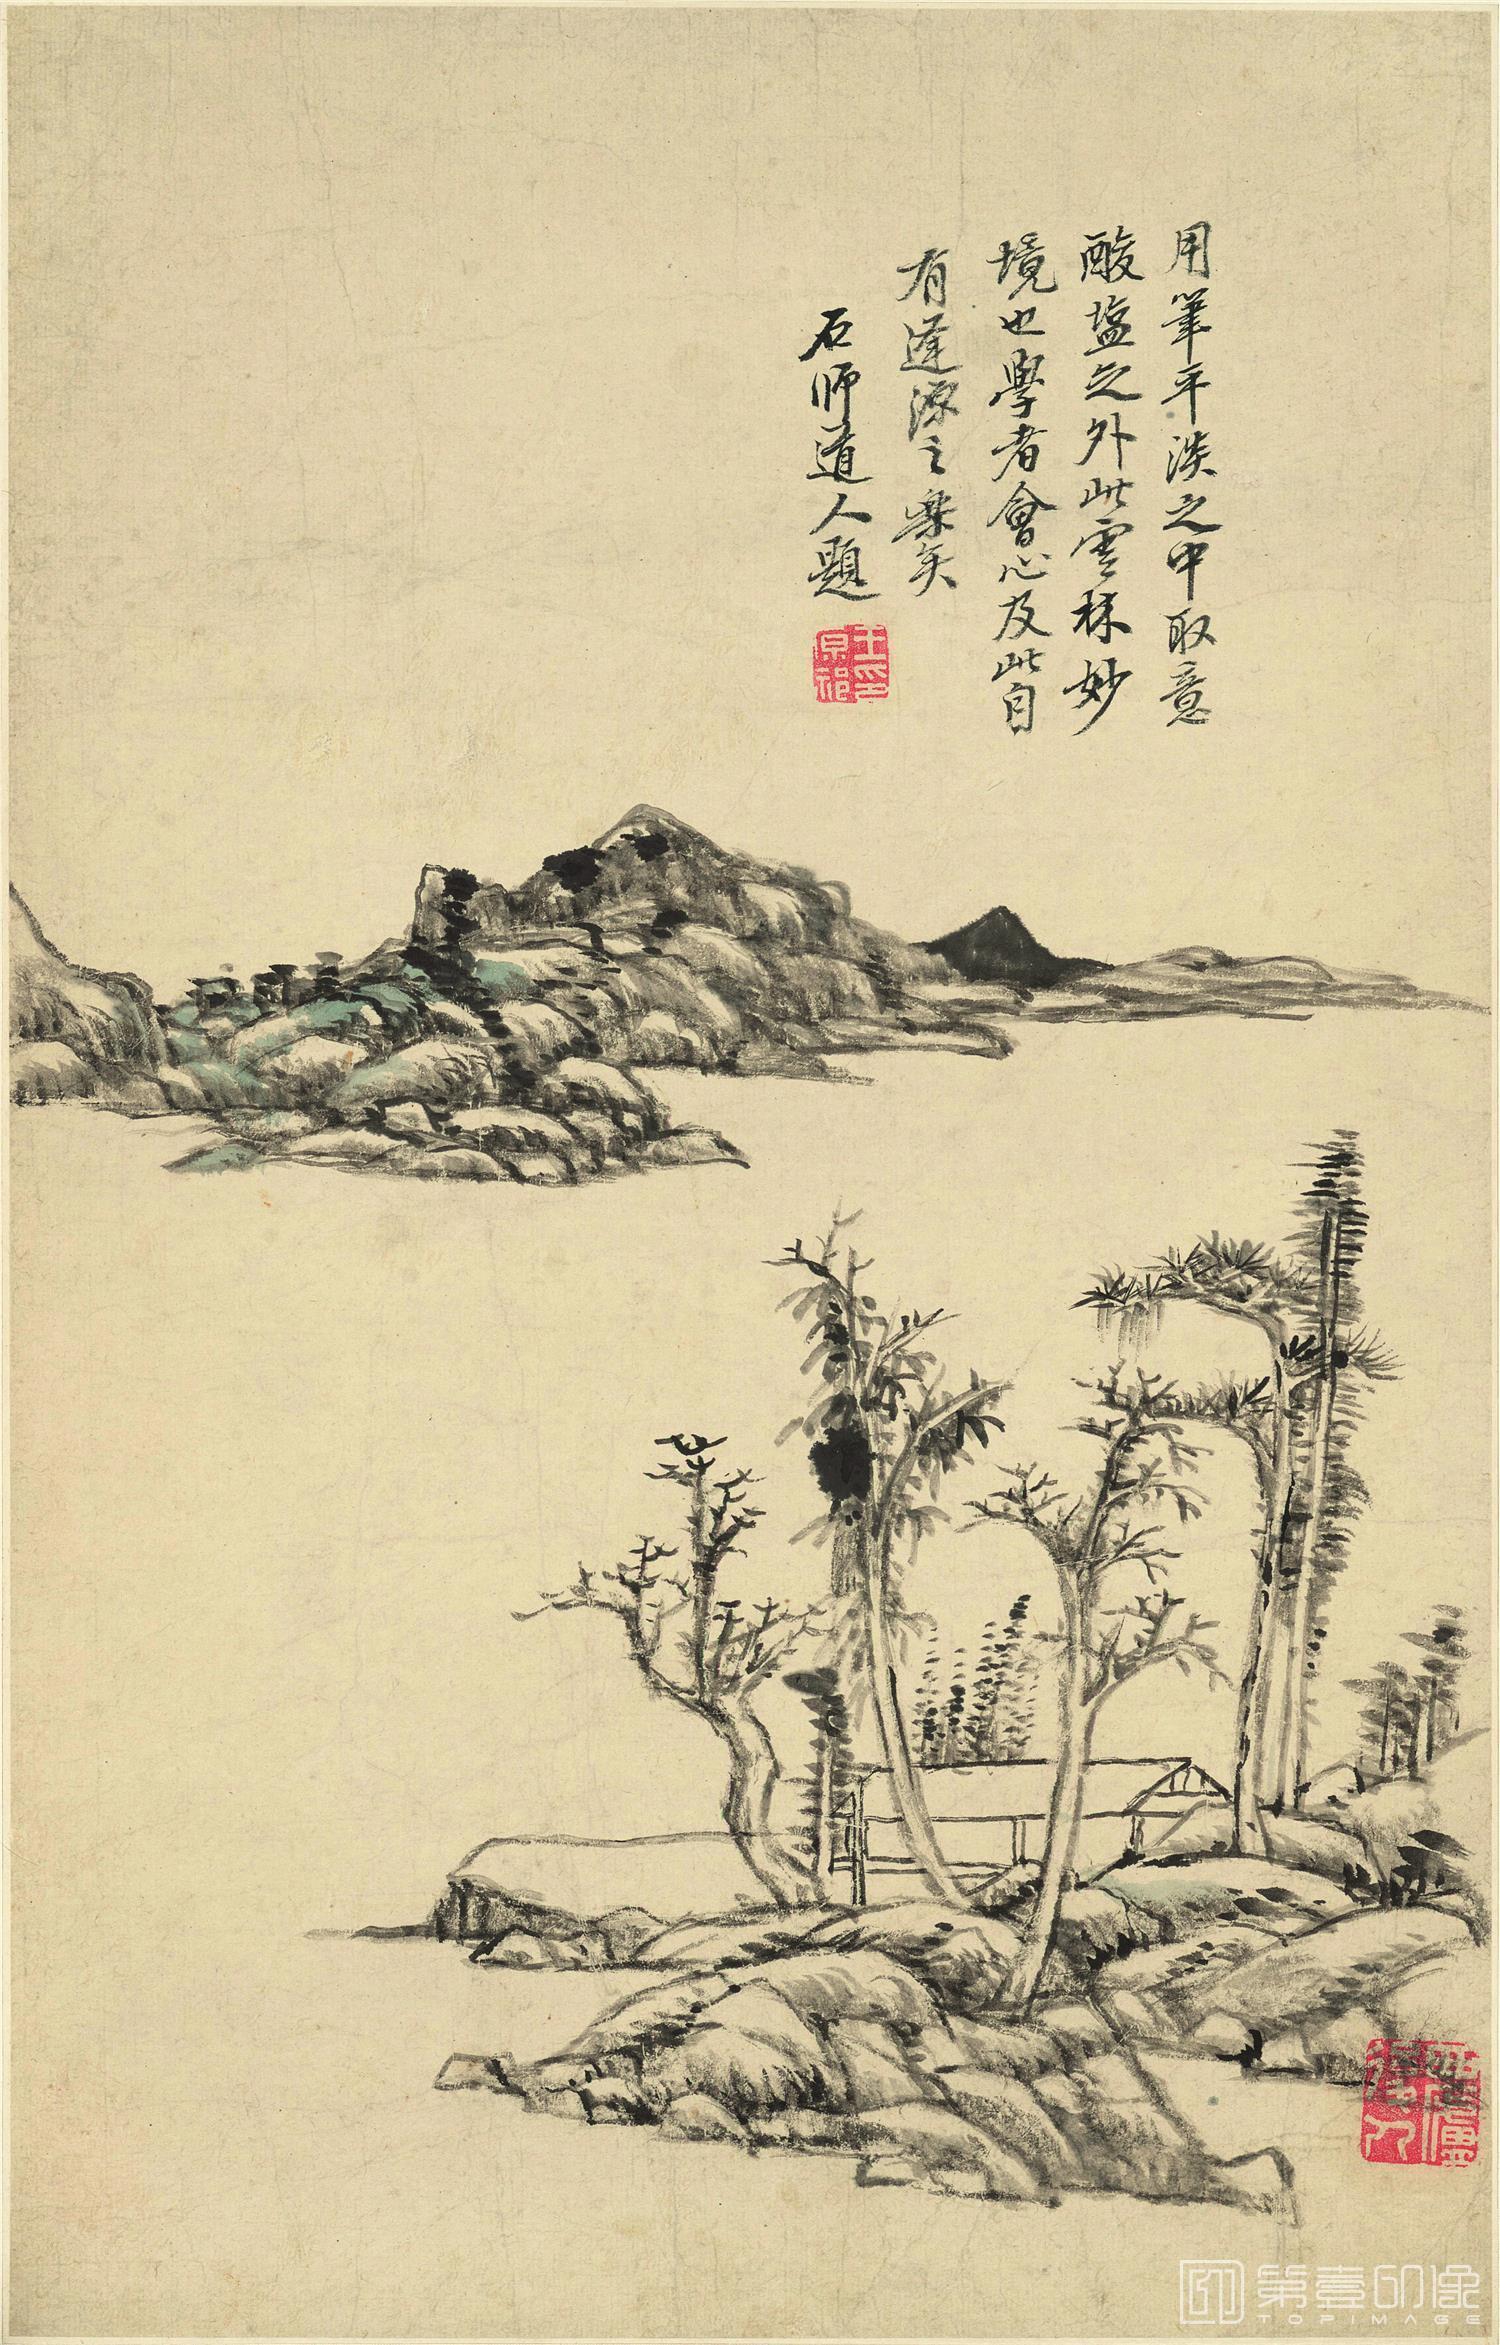 用筆平淡之中取意
酸塩之外此雲林妙
境也學者會心及此自
有逢源之樂矣
石師道人題
王原祁印
第壹印像
TOPIMAGE